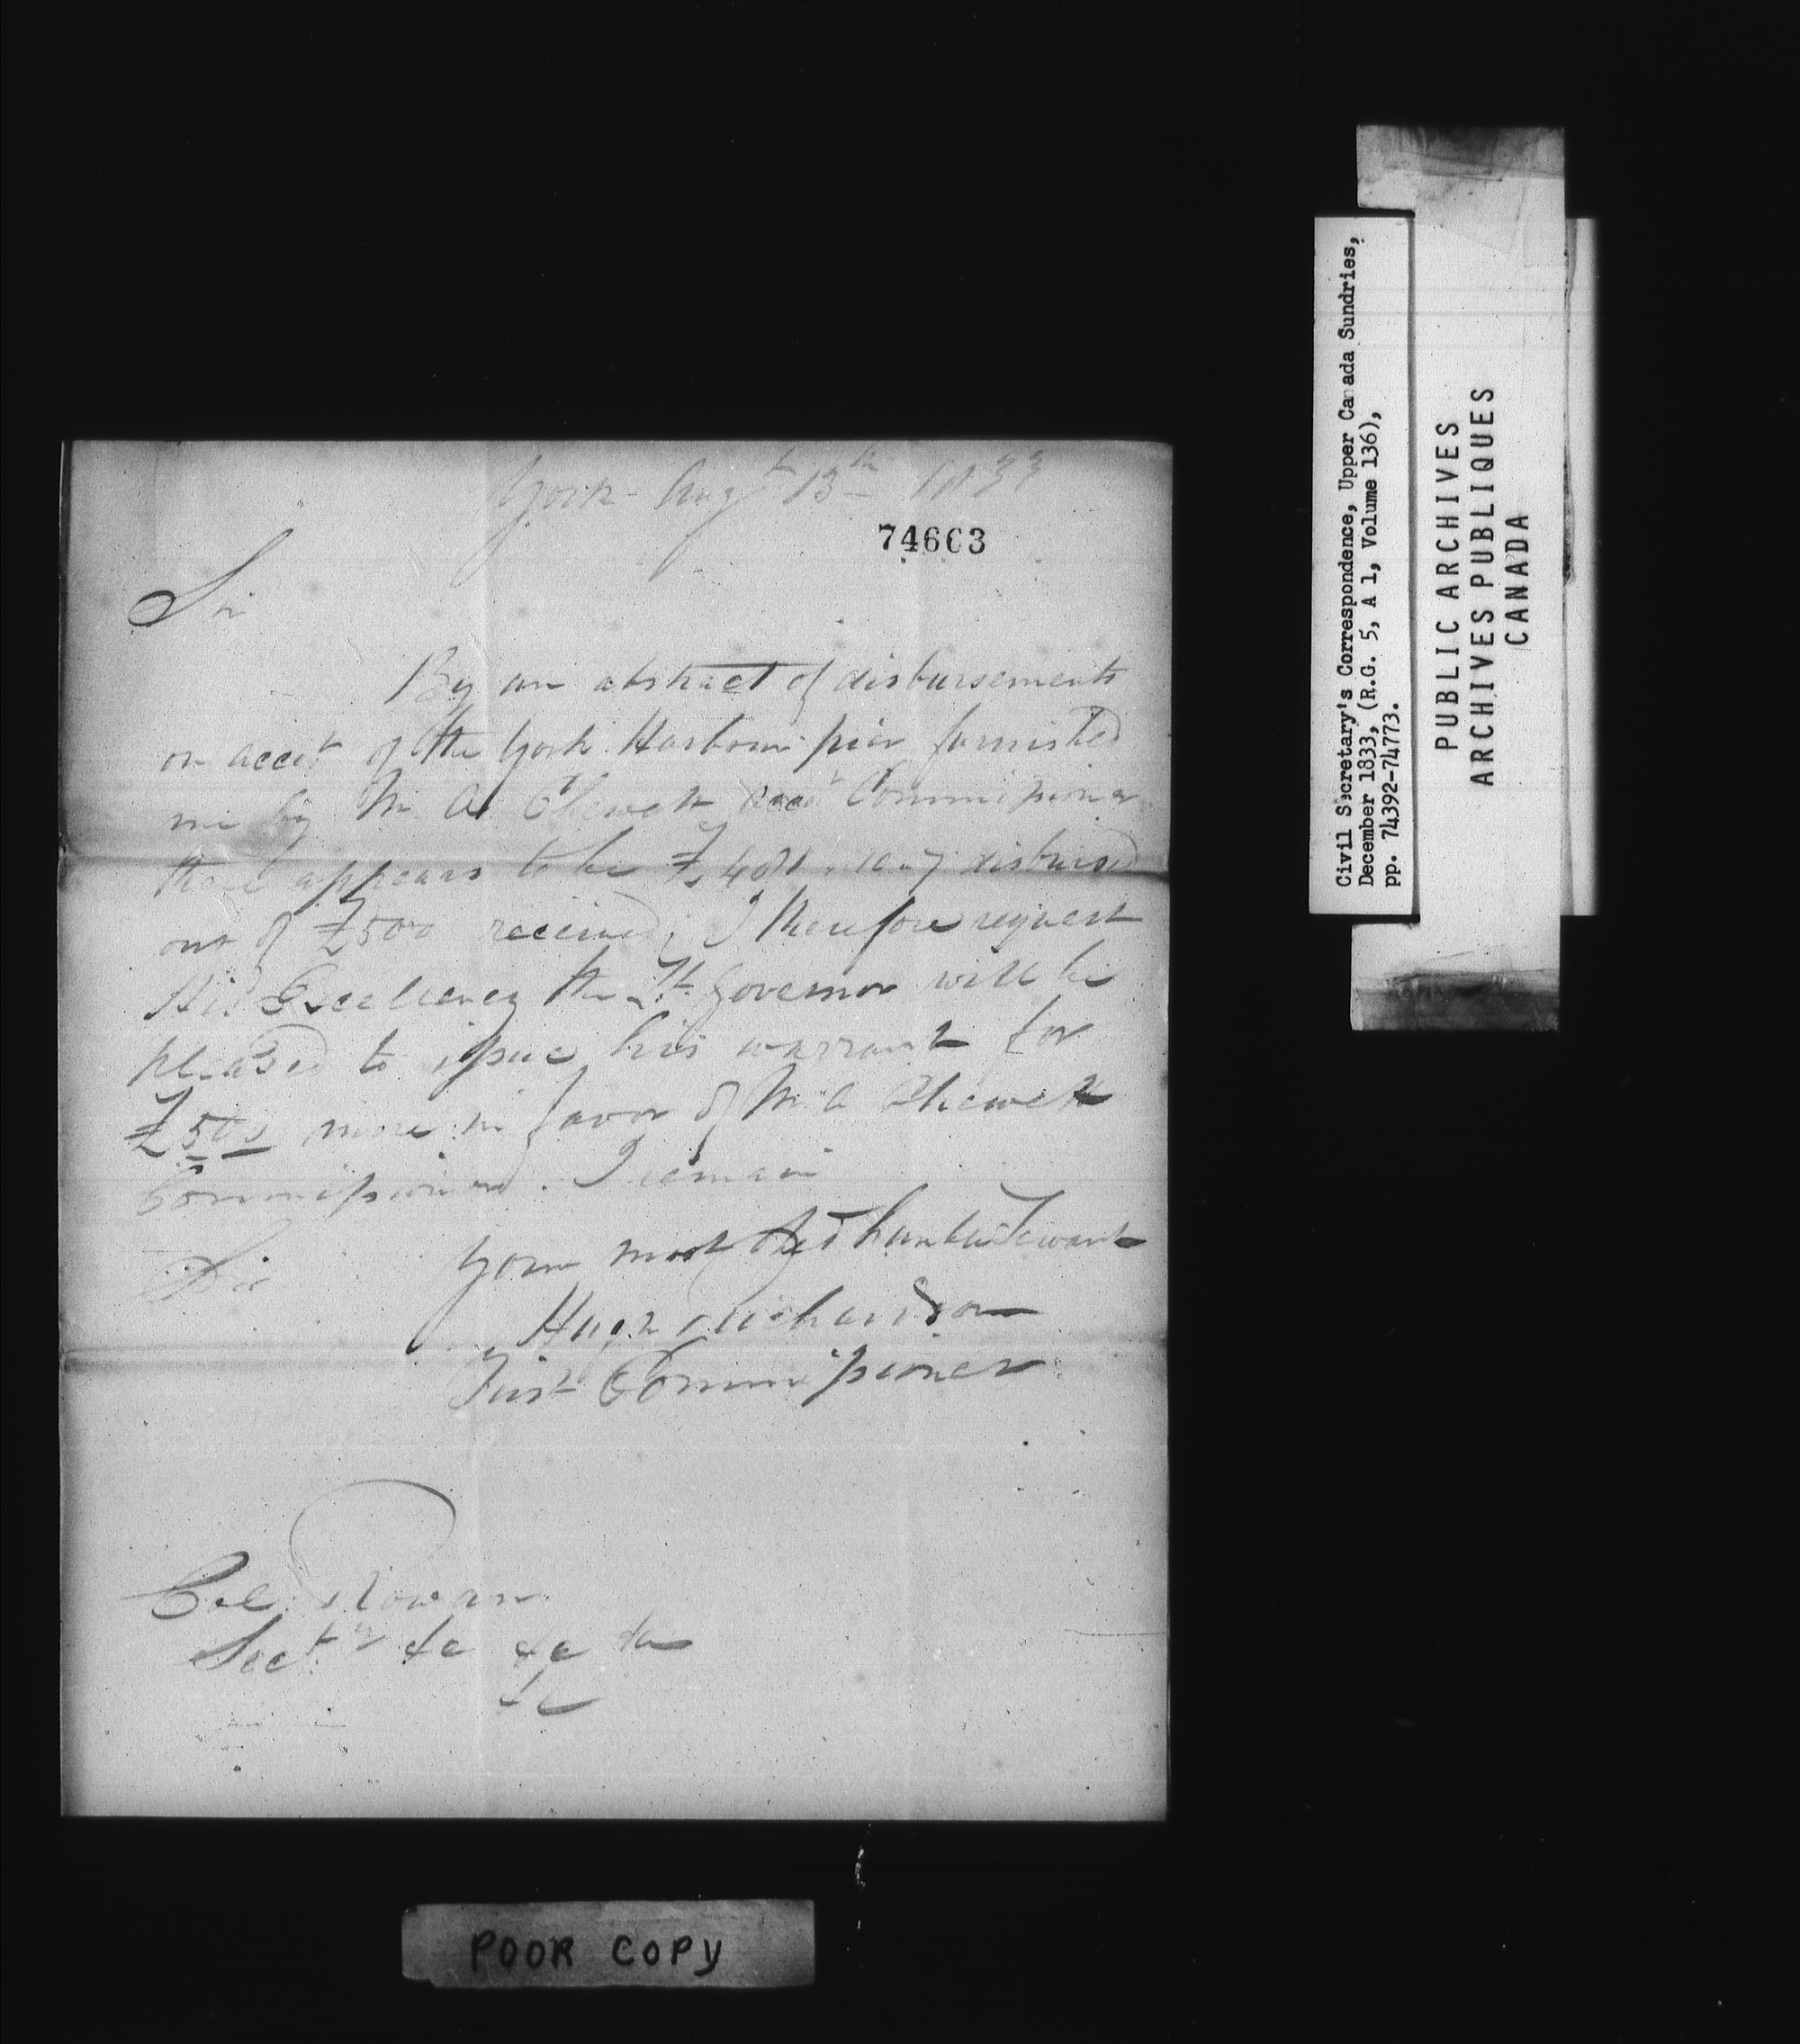 York Augt 13th 1833
74663
Sir
By an abstract of disbursements
on accot of the York Harbour pier furnished
me by Mr A Chewett Commissioner
there appears to be £ disbursed
out of £500 received; I therefore request
His Excellency the Lt Governor will be
pleased to issue his warrant for
£500 more in favor of Mr A Chewett
Commissioner. I remain
Sir Your most Obed humble Servant
Hugh Richardson
First Commissioner
Col Rowan
Secty &c &c &c
&c
POOR COPY
Civil Secretary's Correspondence, Upper Canada Sundries,
December 1833, (R.G. 5, A 1, Volume 136),
pp. 74392-74773.
PUBLIC ARCHIVES
ARCHIVES PUBLIQUES
CANADA